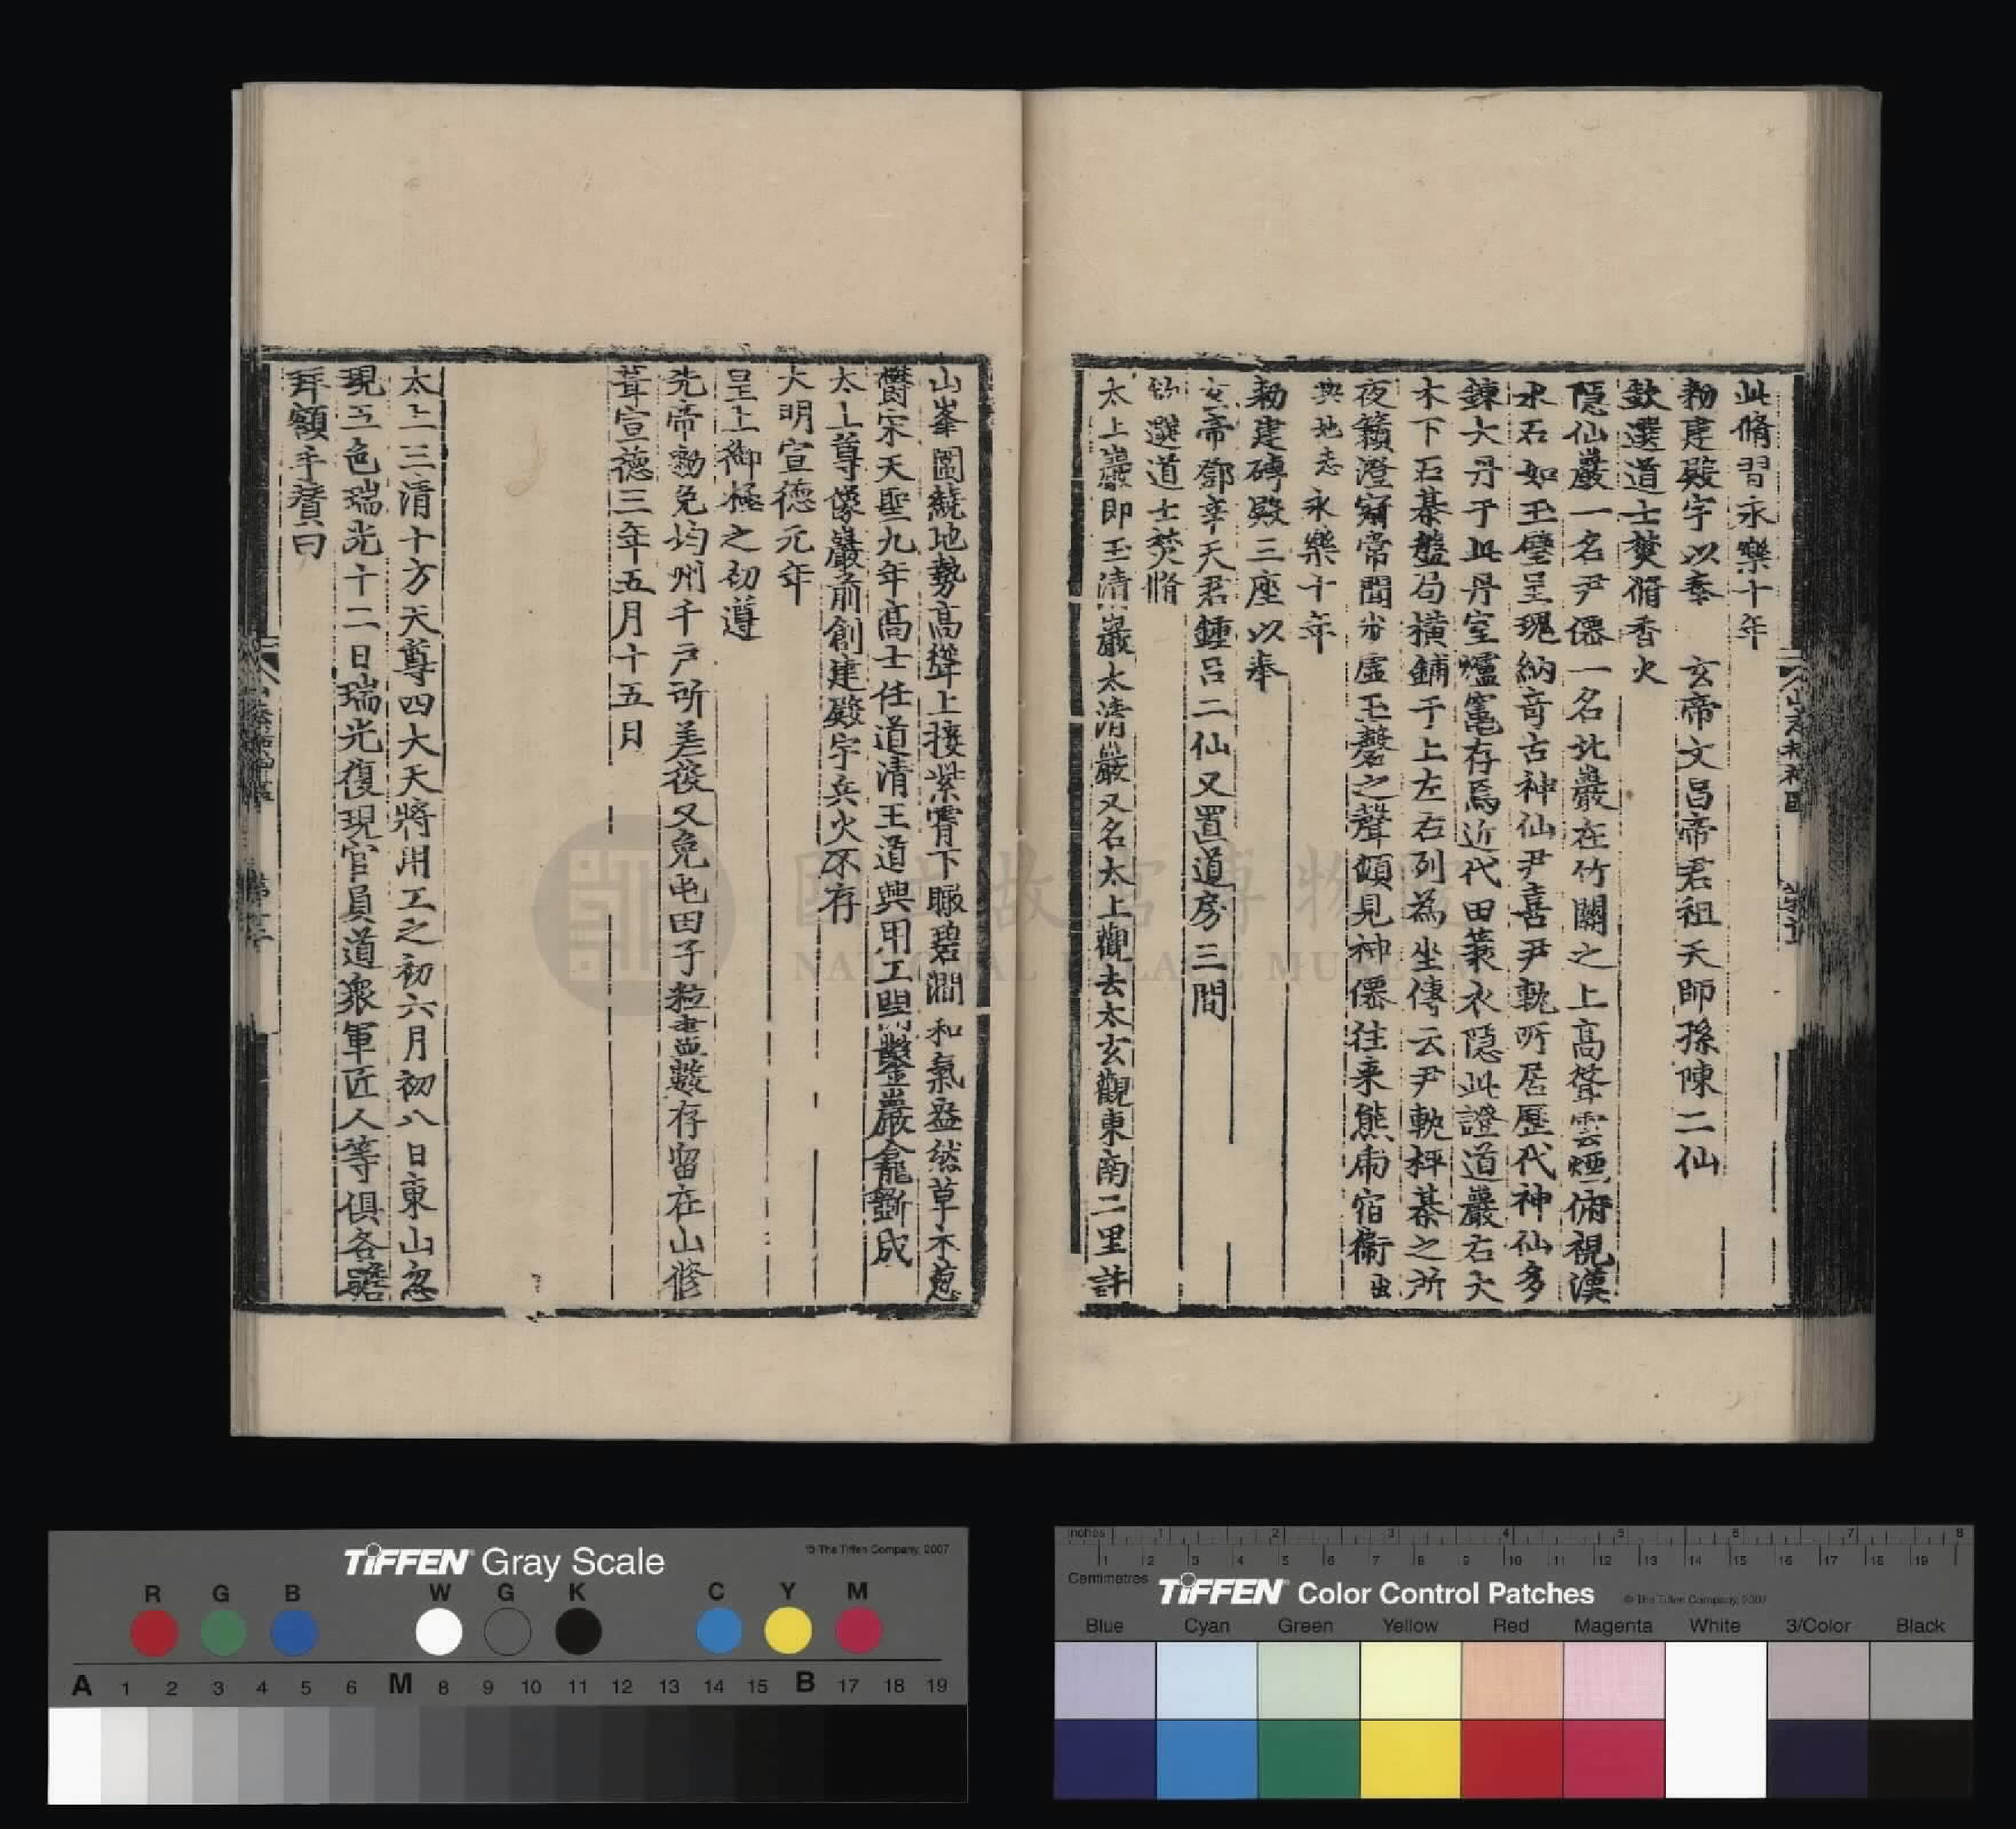 此脩習永樂十年
勑建殿宇以奉　玄帝文昌帝君祖天師孫陳二仙
欽選道士焚脩香火
隱仙巖一名尹僊一名北巖在竹關之上高聳雲煙俯視漢
水石如玉璧呈瑰納奇古神仙尹喜尹軌所居歷代神仙多
鍊大丹于此丹室爐竈存焉近代田蓑衣隱此證道巖右大
木下石棊盤局橫鋪于上左右列為坐傳云尹軌枰棊之所
夜籟澄寂常聞步虛玉磬之聲頻見神僊往来熊虎宿衞出
輿地志永樂十年
勑建磚殿三座以奉
玄帝鄧辛天君鍾呂二仙又置道房三間
欽選道士焚脩
太上巖即玉清巖太清巖又名太上觀去太玄觀東南二里許
山峯圖繞地勢高聳上接紫霄下瞰碧澗和氣盎然草木葱
欝宋天聖九年高士任道清王道興用工開鑿巖龕斵成
太上尊像巖前創建殿宇兵火不存
大明宣德元年
皇上御極之初遵
先帝勑免均州千戶所差役又免屯田子粒盡數存留在山修
葺宣德三年五月十五日
太上三清十方天尊四大天將用工之初六月初八日東山忽
現五色瑞光十二日瑞光復現官員道衆軍匠人等俱各瞻
拜額手賛曰
國立故宮博物院
NATIONAL PALACE MUSEUM
TIFFEN Gray Scale
© The Tiffen Company, 2007
R G B W G K C Y M
A 1 2 3 4 5 6 M 8 9 10 11 12 13 14 15 B 17 18 19
Inches 1 2 3 4 5 6 7 8
1 2 3 4 5 6 7 8 9 10 11 12 13 14 15 16 17 18 19
Centimetres
TIFFEN Color Control Patches
© The Tiffen Company, 2007
Blue Cyan Green Yellow Red Magenta White 3/Color Black